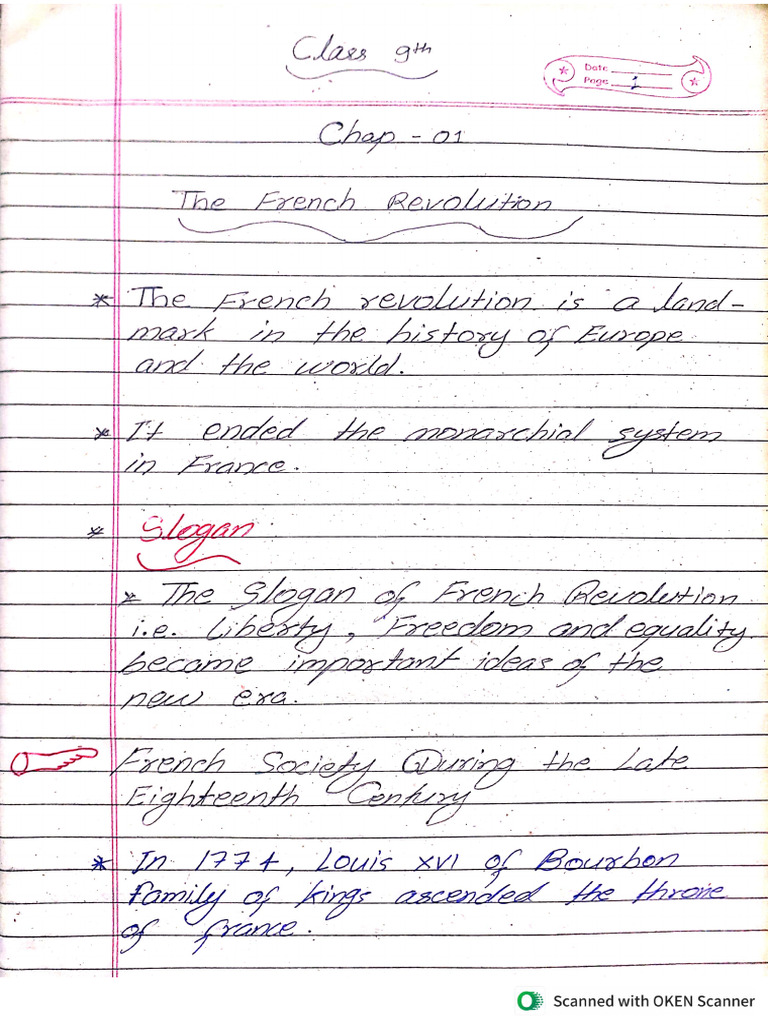 Class 9th
Date
Page 1
Chap - 01
The French Revolution
* The French revolution is a land-
mark in the history of Europe
and the world.
* It ended the monarchial system
in France.
* Slogan
* The Slogan of French Revolution
i.e. Liberty, Freedom and equality
become important ideas of the
new era.
French Society During the Late
Eighteenth Century
* In 1774, Louis XVI of Bourbon
family of kings ascended the throne
of france.
Scanned with OKEN Scanner